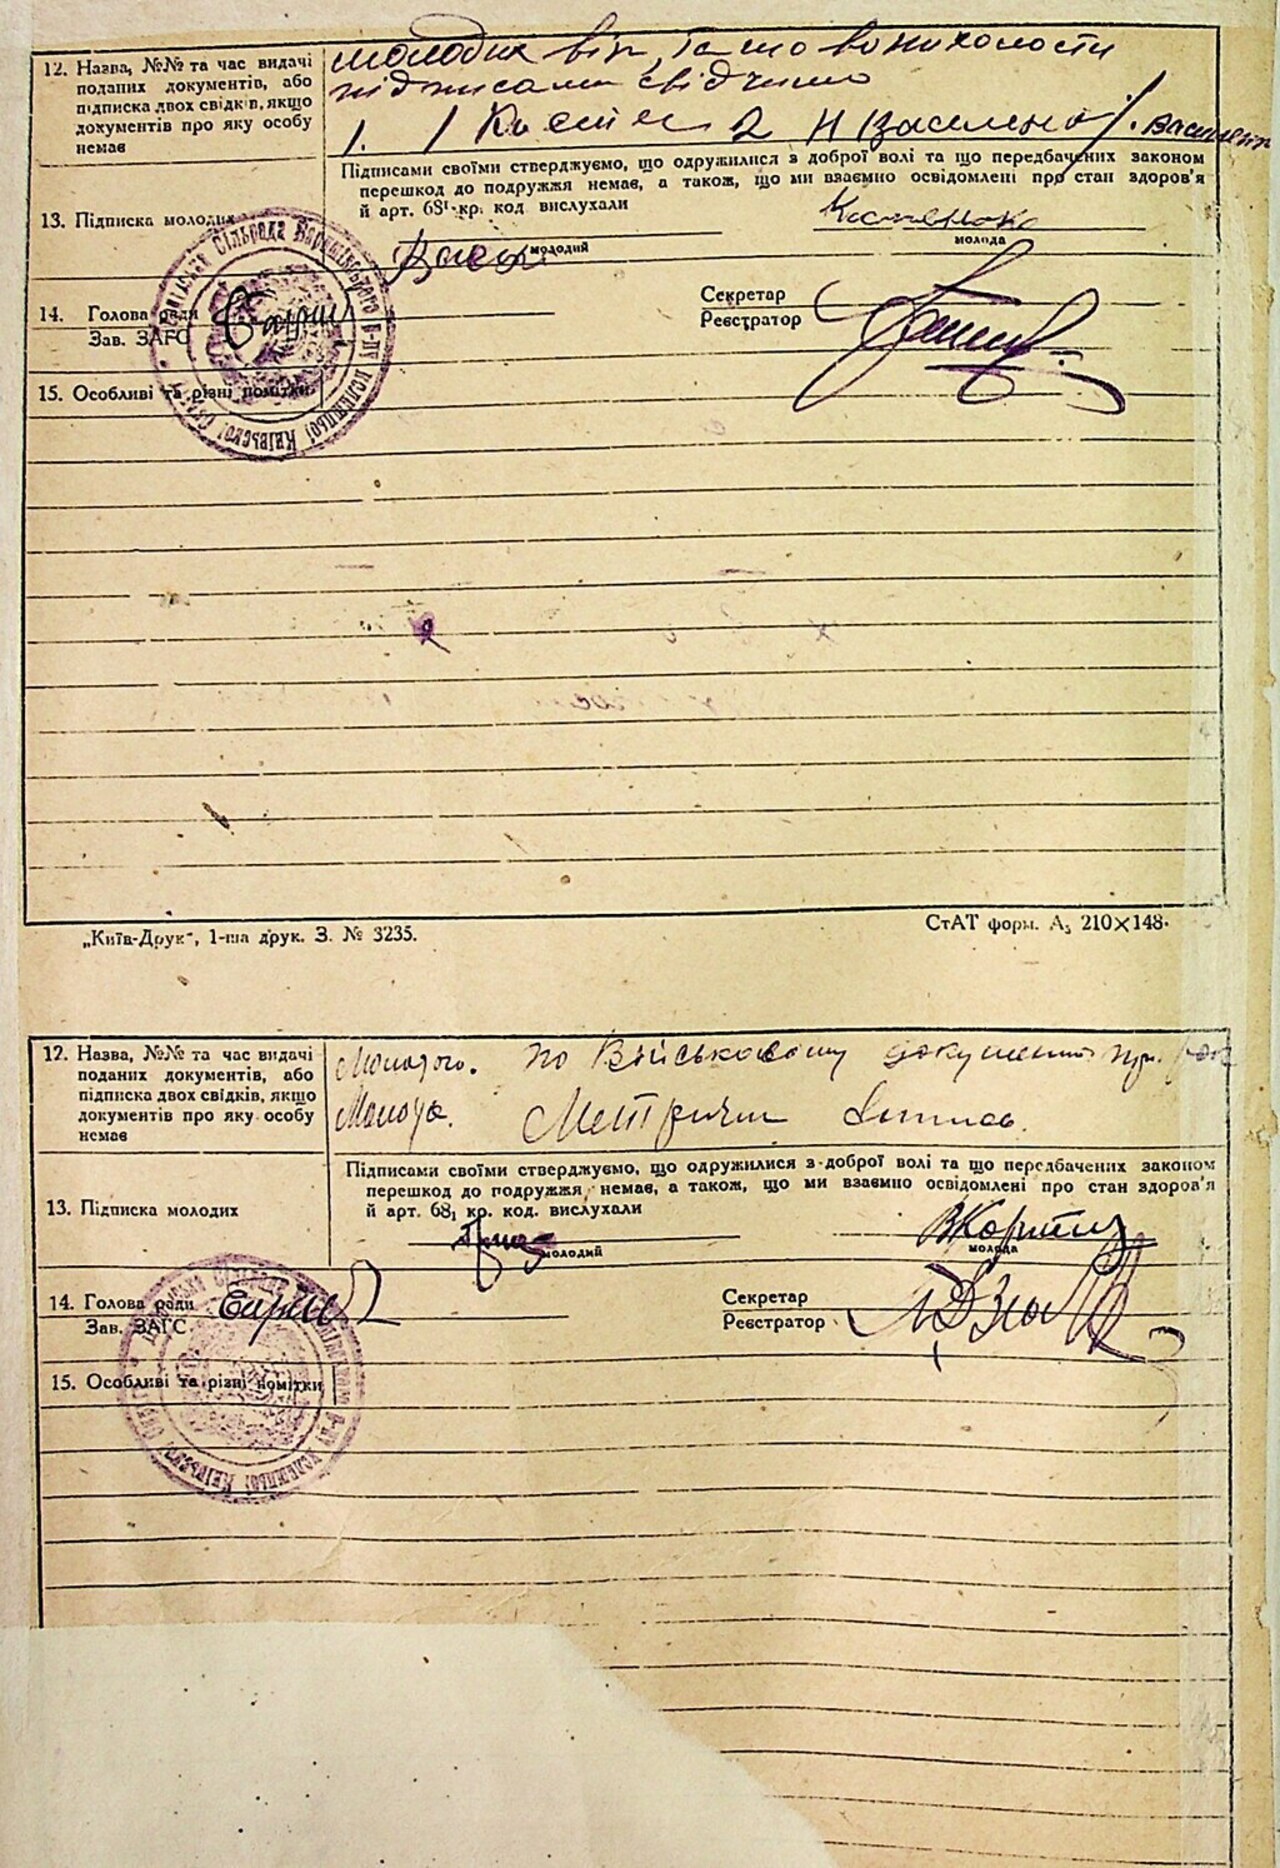 12. Назва, №№ та час видачі
поданих документів, або
підписка двох свідків, якщо
документів про яку особу
немає
молодих вік, та що вони холости
підписами свідчимо
1. 2 Н Василенко
Підписами своїми стверджуємо, що одружилися з доброї волі та що передбачених законом
перешкод до подружжя немає, а також, що ми взаємно освідомлені про стан здоров'я
й арт. 68¹ кр. код вислухали
13. Підписка молодих
молодий
молода
14. Голова ради
Зав. ЗАГС
Секретар
Реєстратор
15. Особливі та різні помітки
Сільрада
Київської
„Київ-Друк", 1-ша друк. З. № 3235.
СтАТ форм. А₅ 210×148.
12. Назва, №№ та час видачі
поданих документів, або
підписка двох свідків, якщо
документів про яку особу
немає
Молодого. по Військовому документу
Молода. Метричний
Підписами своїми стверджуємо, що одружилися з доброї волі та що передбачених законом
перешкод до подружжя немає, а також, що ми взаємно освідомлені про стан здоров'я
й арт. 68₁ кр. код. вислухали
13. Підписка молодих
молодий
молода
14. Голова ради
Зав. ЗАГС
Секретар
Реєстратор
15. Особливі та різні помітки